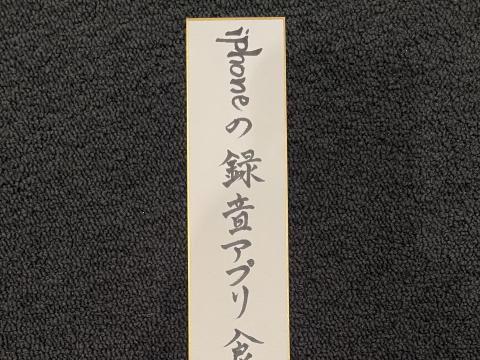 iphoneの録音アプリ